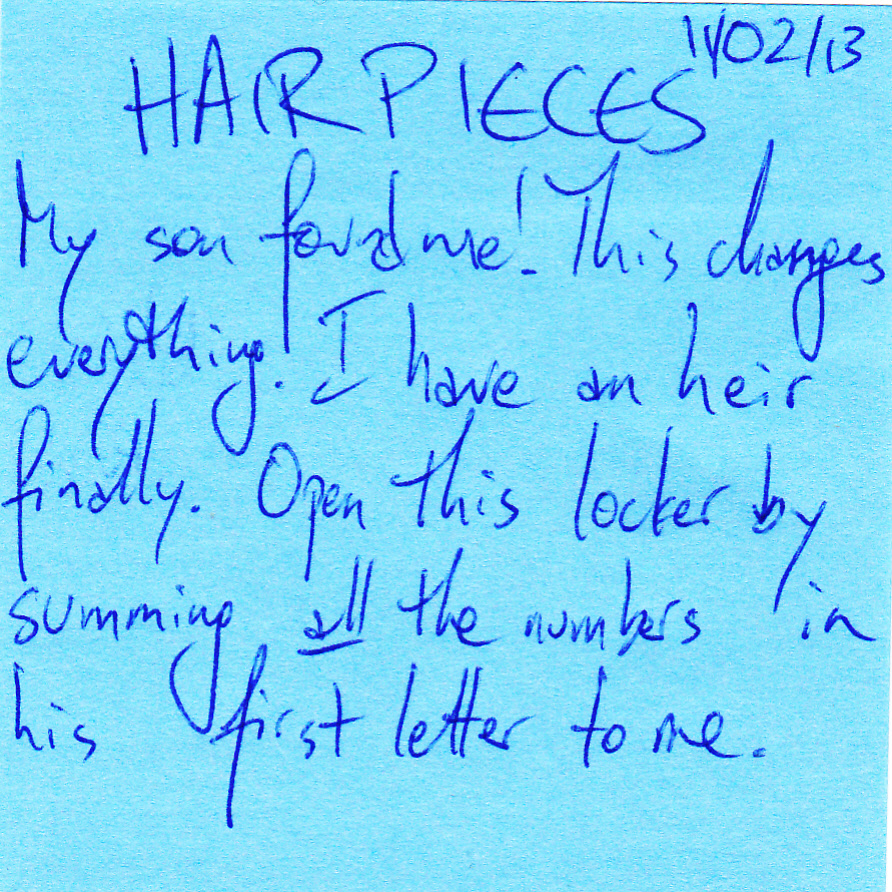 11/02/13
HAIRPIECES
My son found me! This changes
everything. I have an heir
finally. Open this locker by
summing all the numbers in
his first letter to me.